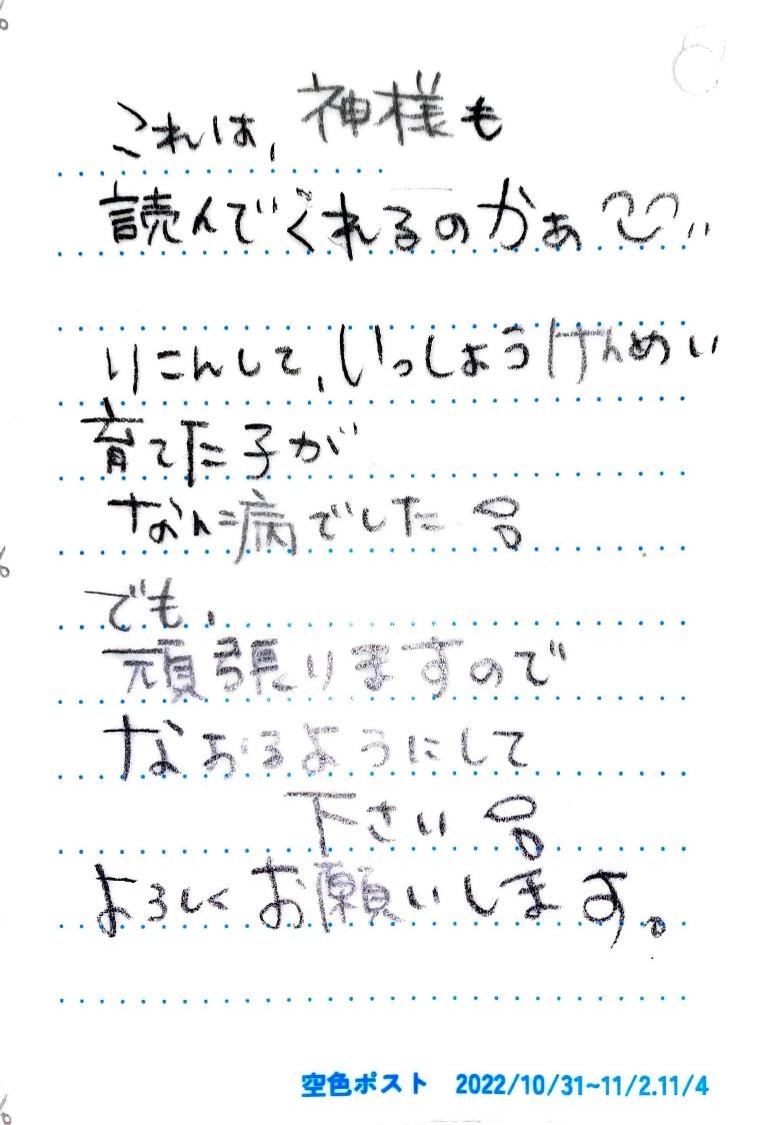 これは、神様も
読んでくれるのかぁ
りこんして、いっしょうけんめい
育てた子が
なん病でした
でも、
頑張りますので
なおるようにして
下さい
よろしくお願いします。
空色ポスト 2022/10/31~11/2.11/4